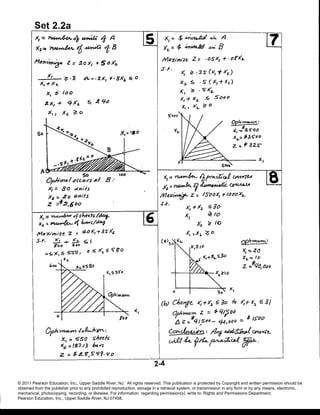 Set 2.2a
5
x₁ = number of units of A
x₂ = number of units of B
Maximize z = 20x₁ + 50x₂
x₁/(x₁+x₂) ≥ .8 or -.2x₁ + .8x₂ ≤ 0
x₁ ≤ 100
2x₁ + 4x₂ ≤ 240
x₁, x₂ ≥ 0
50
B
50
100
Optimal occurs at B:
x₁ = 80 units
x₂ = 20 units
Z = $2,600
6
x₁ = number of sheets/day
x₂ = number of bars/day
Maximize Z = 40x₁ + 35x₂
s.t. x₁/800 + x₂/600 ≤ 1
0 ≤ x₁ ≤ 550, 0 ≤ x₂ ≤ 580
x₂
600
x₂≤580
x₁≤550
Optimum
0
800
x₁
Optimum solution:
x₁ = 550 sheets
x₂ = 187.13 bars
Z = $28,549.40
7
x₁ = $ invested in A
x₂ = $ invested in B
Maximize Z = .05x₁ + .08x₂
s.t.
x₁ ≥ .25(x₁+x₂)
x₂ ≤ .5(x₁+x₂)
x₁ ≥ .5x₂
x₁+x₂ ≤ 5000
x₁, x₂ ≥ 0
x₂
Optimum:
x₁ = 2500
x₂ = 2500
Z = $325
x₁
8
x₁ = number of practical courses
x₂ = number of humanistic courses
Maximize Z = 1500x₁ + 1000x₂
s.t.
x₁+x₂ ≤ 30
x₁ ≥ 10
x₂ ≥ 10
x₁, x₂ ≥ 0
(a)
x₂
30
x₁≥10
x₁+x₂≤30
x₂≥10
0
30
x₁
optimum:
x₁ = 20
x₂ = 10
Z = $40,000
(b) Change x₁+x₂ ≤ 30 to x₁+x₂ ≤ 31
Optimum Z = $41500
ΔZ = $41,500 – 40,000 = $1500
Conclusion: Any additional course
will be of the practical type.
2-4
© 2011 Pearson Education, Inc., Upper Saddle River, NJ. All rights reserved. This publication is protected by Copyright and written permission should be
obtained from the publisher prior to any prohibited reproduction, storage in a retrieval system, or transmission in any form or by any means, electronic,
mechanical, photocopying, recording, or likewise. For information regarding permission(s), write to: Rights and Permissions Department,
Pearson Education, Inc., Upper Saddle River, NJ 07458.